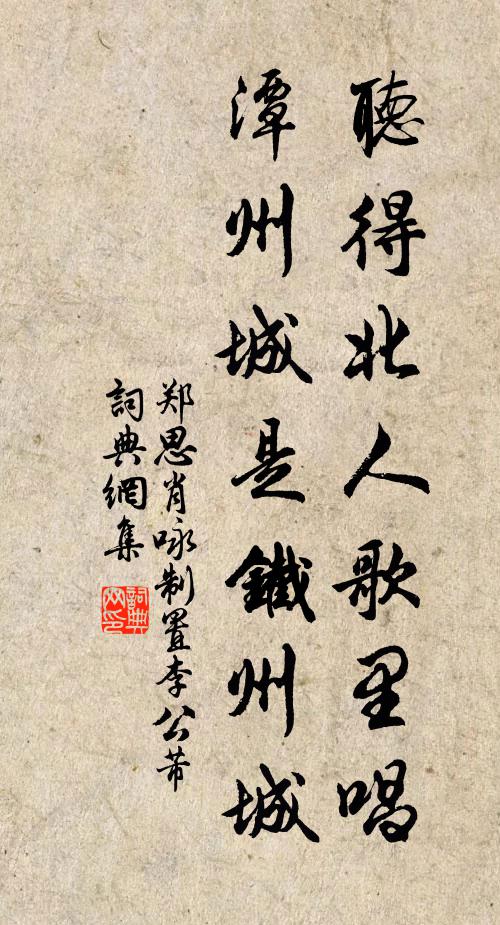 聽得北人歌里唱
潭州城是鐵州城
郑思肖咏制置李公芾
詞典網集
詞典網印